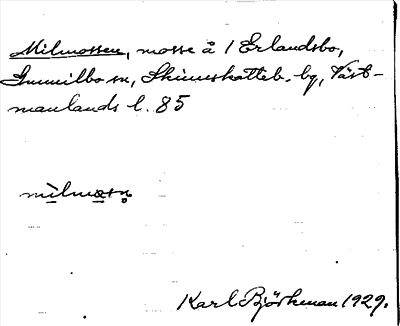 Milmossen, mosse å 1 Erlandsbo,
Gunnilbo sn, Skinnskatteb. bg, Väst-
manlands l. 85
mìlmɷsn̥
Karl Björkman 1929.